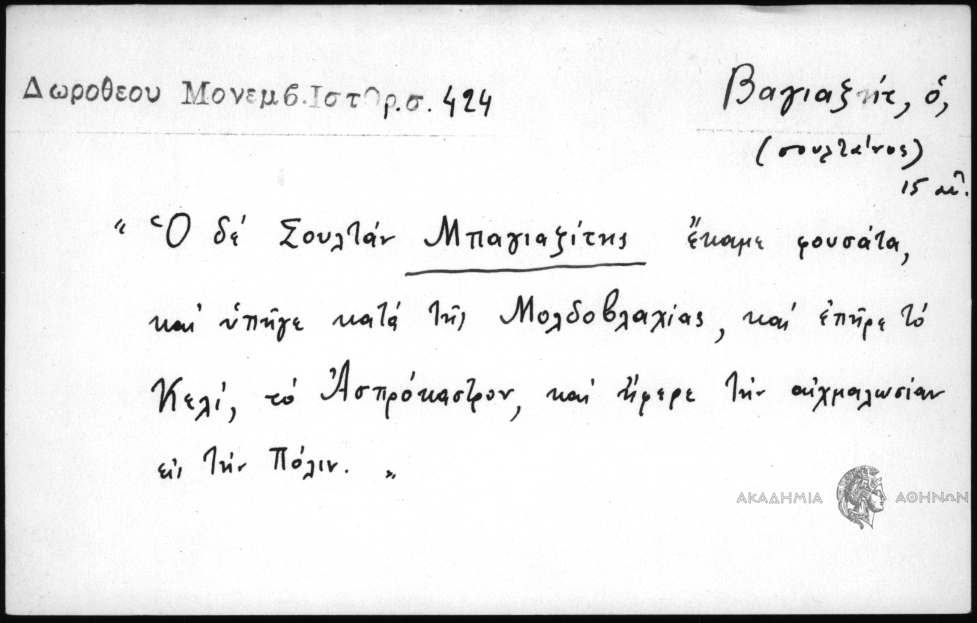 Δωροθεου Μονεμβ. Ιστορ. σ. 424
Βαγιαζήτ, ὁ,
(σουλτάνος)
15 αἰ.
“ Ὁ δέ Σουλτάν Μπαγιαζίτης ἔκαμε φουσάτα,
καί ὑπῆγε κατά τῆς Μολδοβλαχίας, καί ἐπῆρε τό
Κελί, τό Ἀσπρόκαστρον, καί ἤφερε τήν αἰχμαλωσίαν
εἰς τήν Πόλιν. „
ΑΚΑΔΗΜΙΑ ΑΘΗΝΩΝ